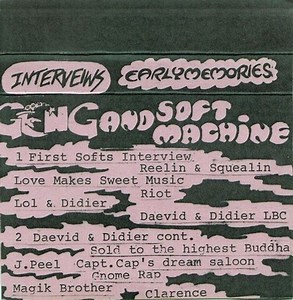 INTERVEIWS EARLYMEMORIES
GONG AND SOFT MACHINE
1 First Softs Interview
Reelin & Squealin
Love Makes Sweet Music
Riot
Lol & Didier
Daevid & Didier LBC
2 Daevid & Didier cont.
Sold to the highest Buddha
J.Peel Capt.Cap's dream saloon
Gnome Rap
Magik Brother
Clarence